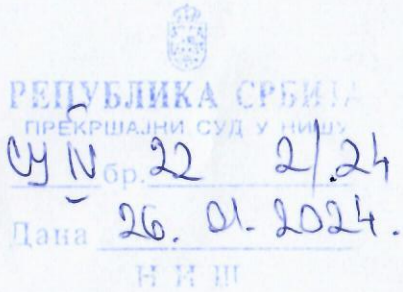 РЕПУБЛИКА СРБИЈА
ПРЕКРШАЈНИ СУД У НИШУ
СУ IV бр. 22 2/24
Дана 26. 01. 2024.
НИШ